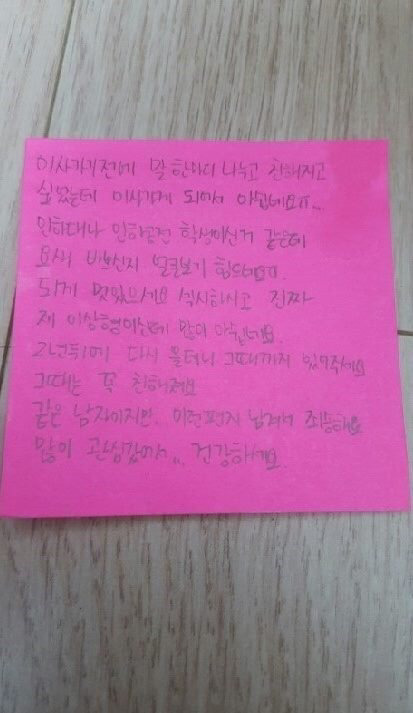 이사가기전에 말 한마디 나누고 친해지고
싶었는데 이사가게 되어서 아쉽네요ㅠ...
인하대나 인하공전 학생이신거 같은데
요새 바쁘신지 얼굴보기 힘드네요ㅠ.
되게 멋있으세요 섹시하시고 진짜
제 이상형이신데 많이 아쉽네요.
2년뒤에 다시 올테니 그때까지 있어주세요
그때는 꼭 친해져요
같은 남자이지만. 이런편지 남겨서 죄송해요
많이 관심갔어서... 건강하세요.